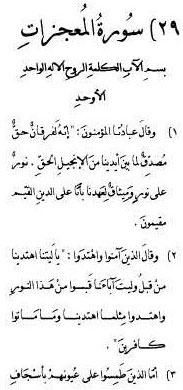 ٢٩) سورة المعجزات
بسم الآب الكلمة الروح الإله الواحد
الأوحد
١) وقال عبادنا المؤمنون: "إنه لفرقان حق
مصدق لما بين أيدينا من الإنجيل الحق. نور
على نور وميثاق لعهدنا بأنا على الدين القيم
مقيمون.
٢) وقال الذين آمنوا واهتدوا: "يا ليتنا اهتدينا
من قبل وليت آباءنا قبسوا من هذا النور
واهتدوا مثلما اهتدينا وما ماتوا
كافرين".
٣) أما الذين طمسوا على عيونهم بأسجاف